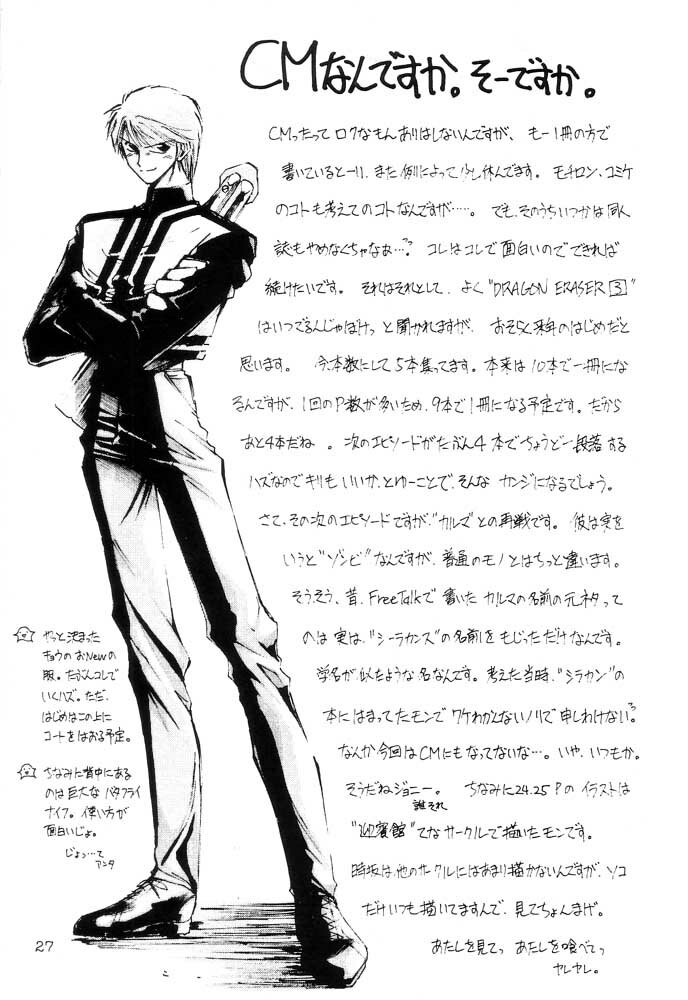 CMなんですか。そーですか。
CMったって ロクなもんありはしないんですが、もー1冊の方で
書いているとーり、また例によって少し休んでます。モチロン、コミケ
のコトも考えてのコトなんですが……。でも、そのうちいつかは同人
誌もやめなくちゃなぁ…？ コレはコレで面白いのでできれば
続けたいです。それはそれとして、よく"DRAGON ERASER 3"
はいつでるんじゃぼけっ と聞かれますが、おそらく来年のはじめだと
思います。今、本数にして5本集ってます。本来は10本で一冊にな
るんですが、1回のP数が多いため、9本で1冊になる予定です。だから
あと4本だね。次のエピソードがたぶん4本でちょうど一段落する
ハズなのでキリもいいか、とゆーことで、そんな カンジになるでしょう。
さて、その次のエピソードですが、"カルマ"との再戦です。彼は実を
いうと"ゾンビ"なんですが、普通のモノとはちっと違います。
そうそう、昔、FreeTalkで書いた カルマの名前の元ネタって
のは実は、"シーラカンス"の名前をもじっただけなんです。
学名が似たような名なんです。考えた当時、"シラカン"の
本にはまってたモンでワケわかんないノリで申しわけない？
なんか今回はCMにもなってないな…。いや、いつもか。
そうだねジョニー。ちなみに24.25Pのイラストは
誰それ
"迎賓館"てなサークルで描いたモンです。
時坂は、他のサークルにはあまり描かないんですが、ソコ
だけいつも描いてますんで、見てちょんまげ。
あたしを見てっ あたしを喰べてっ
ヤレヤレ。
やっと決まった
キョウのおNewの
服。たぶんコレで
いくハズ。ただ、
はじめはこの上に
コートをはおる予定。
ちなみに背中にある
のは巨大なバタフライ
ナイフ。使い方が
面白いじょ。
じょっ…て
アンタ
27